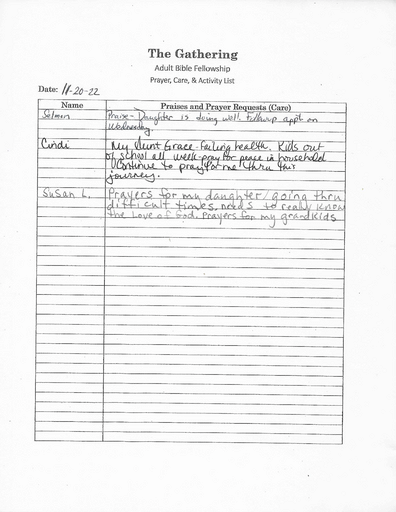 The Gathering
Adult Bible Fellowship
Prayer, Care, & Activity List
Date: 11-20-22
Name Praises and Prayer Requests (Care)
Praise - Daughter is doing well. Followup appt on
Wednesday.
Cindi My Aunt Grace - Failing health. Kids out
of school all week - pray for peace in household
Continue to pray for me thru this
journey.
Susan L. Prayers for my daughter/going thru
difficult times, needs to really know
the Love of God. Prayers for my grandkids